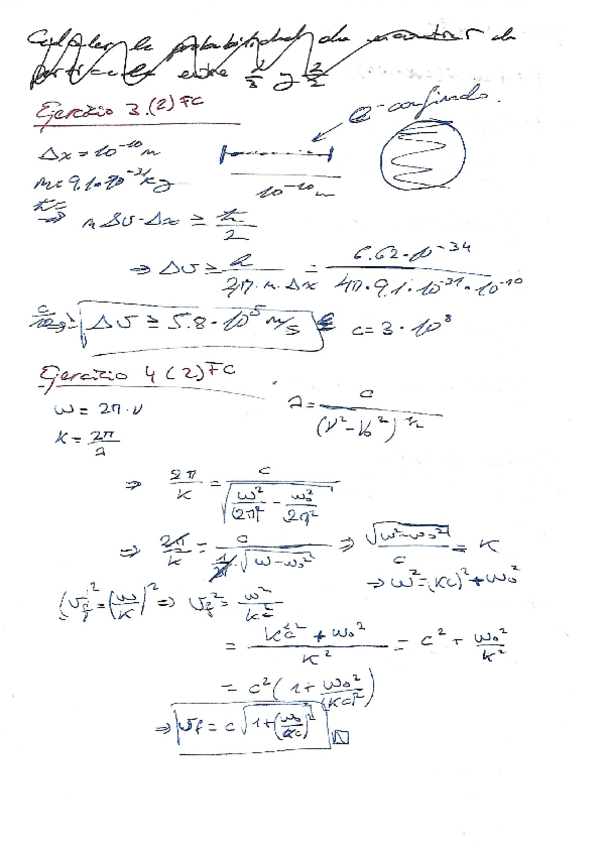 Calcular la probabilidad de encontrar la
partícula entre
Ejercicio 3.(2) FC
e- confinado.
Δx = 10^-10 m
m = 9.1·10^-31 kg
10^-10 m
⇒ m Δv·Δx ≥ ħ/2
⇒ Δv ≥ h/(2π·m·Δx) = 6.62·10^-34/(4π·9.1·10^-31·10^-10)
Δv ≥ 5.8·10^5 m/s c = 3·10^8
Ejercicio 4 (2) FC
ω = 2π·ν λ = c/(ν²-ν₀²)^1/2
K = 2π/λ
⇒ 2π/K = c/√(ω²/(2π)² - ω₀²/2π²)
⇒ 2π/K = c/(1/2π·√(ω-ω₀²)) ⇒ √(ω²-ω₀²)/c = K
⇒ ω² = (Kc)² + ω₀²
(v_f² = (ω/K)² ⇒ v_f² = ω²/K²
= (K²c² + ω₀²)/K² = c² + ω₀²/K²
= c²(1 + ω₀²/(Kc)²)
⇒ v_f = c√(1+(ω₀/Kc)²)